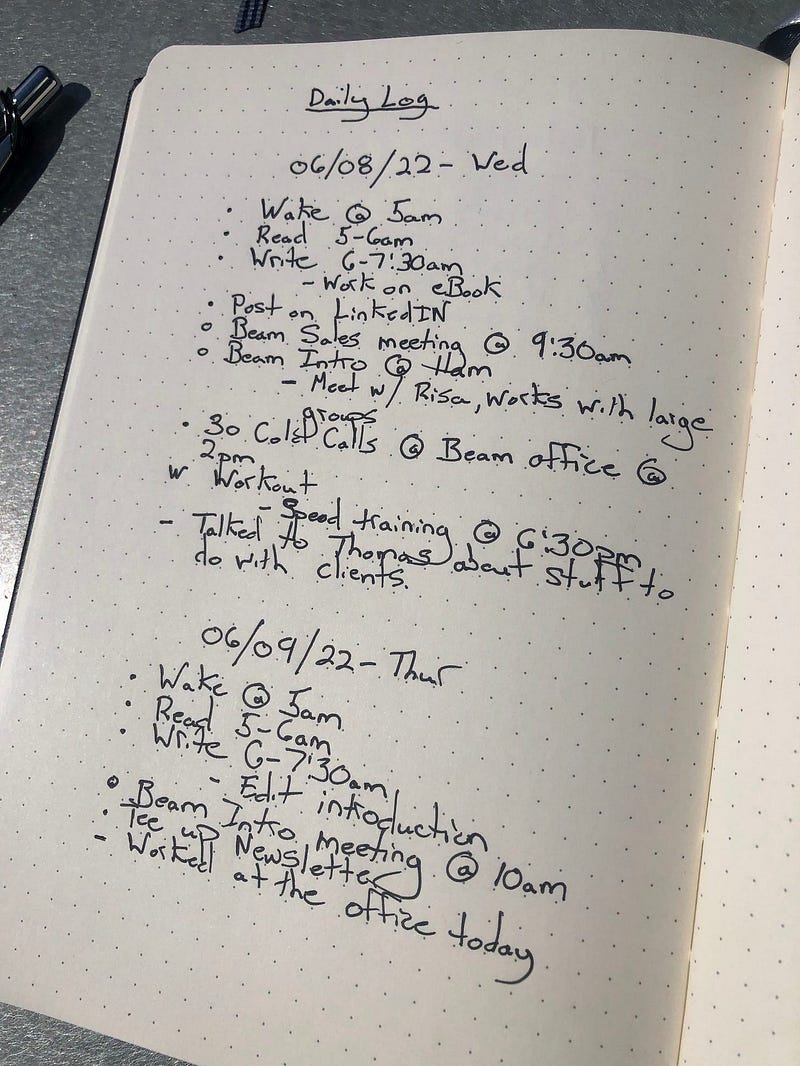 Daily Log
06/08/22 - Wed
• Wake @ 5am
• Read 5-6am
• Write 6-7:30am
- Work on eBook
• Post on LinkedIN
o Beam Sales meeting @ 9:30am
o Beam Intro @ 11am
- Meet w/ Risa, works with large
groups
• 30 Cold Calls @ Beam office @
2pm
w Workout
- Speed training @ 6:30pm
- Talked to Thomas about stuff to
do with clients.
06/09/22 - Thur
• Wake @ 5am
• Read 5-6am
• Write 6-7:30am
- Edit introduction
o Beam Intro meeting @ 10am
• Tee up Newsletter
- Worked at the office today